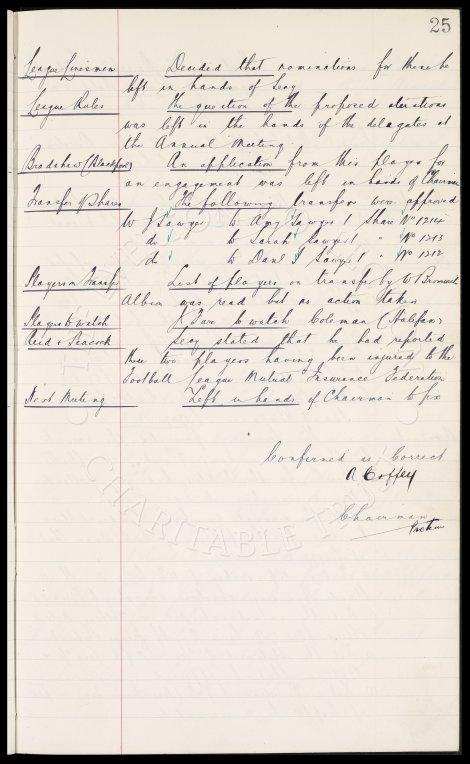 25
League Linesmen Decided that nominations for these be
left in hands of Secy
League Rules The question of the proposed alterations
was left in the hands of the delegates at
the Annual Meeting
Bradshaw (Blackpool) An application from this player for
an engagement was left in hands of Chairman
Transfer of Shares The following transfers were approved
W J Sawyer to Amy Sawyer 1 Share No 1214
do to Sarah Sawyer 1 " No 1213
do to Danl J Sawyer 1 " No 1212
Players on Transfer List of players on transfer by W Bromwich
Albion was read but no action taken
Players to watch to watch Coleman (Halifax)
Reid & Peacock Secy stated that he had reported
these two players having been injured to the
Football League Mutual Insurance Federation
Next Meeting Left in hands of Chairman to fix
Confirmed as Correct
A Coffey
Chairman
Pro tem
CHARITABLE TRUST